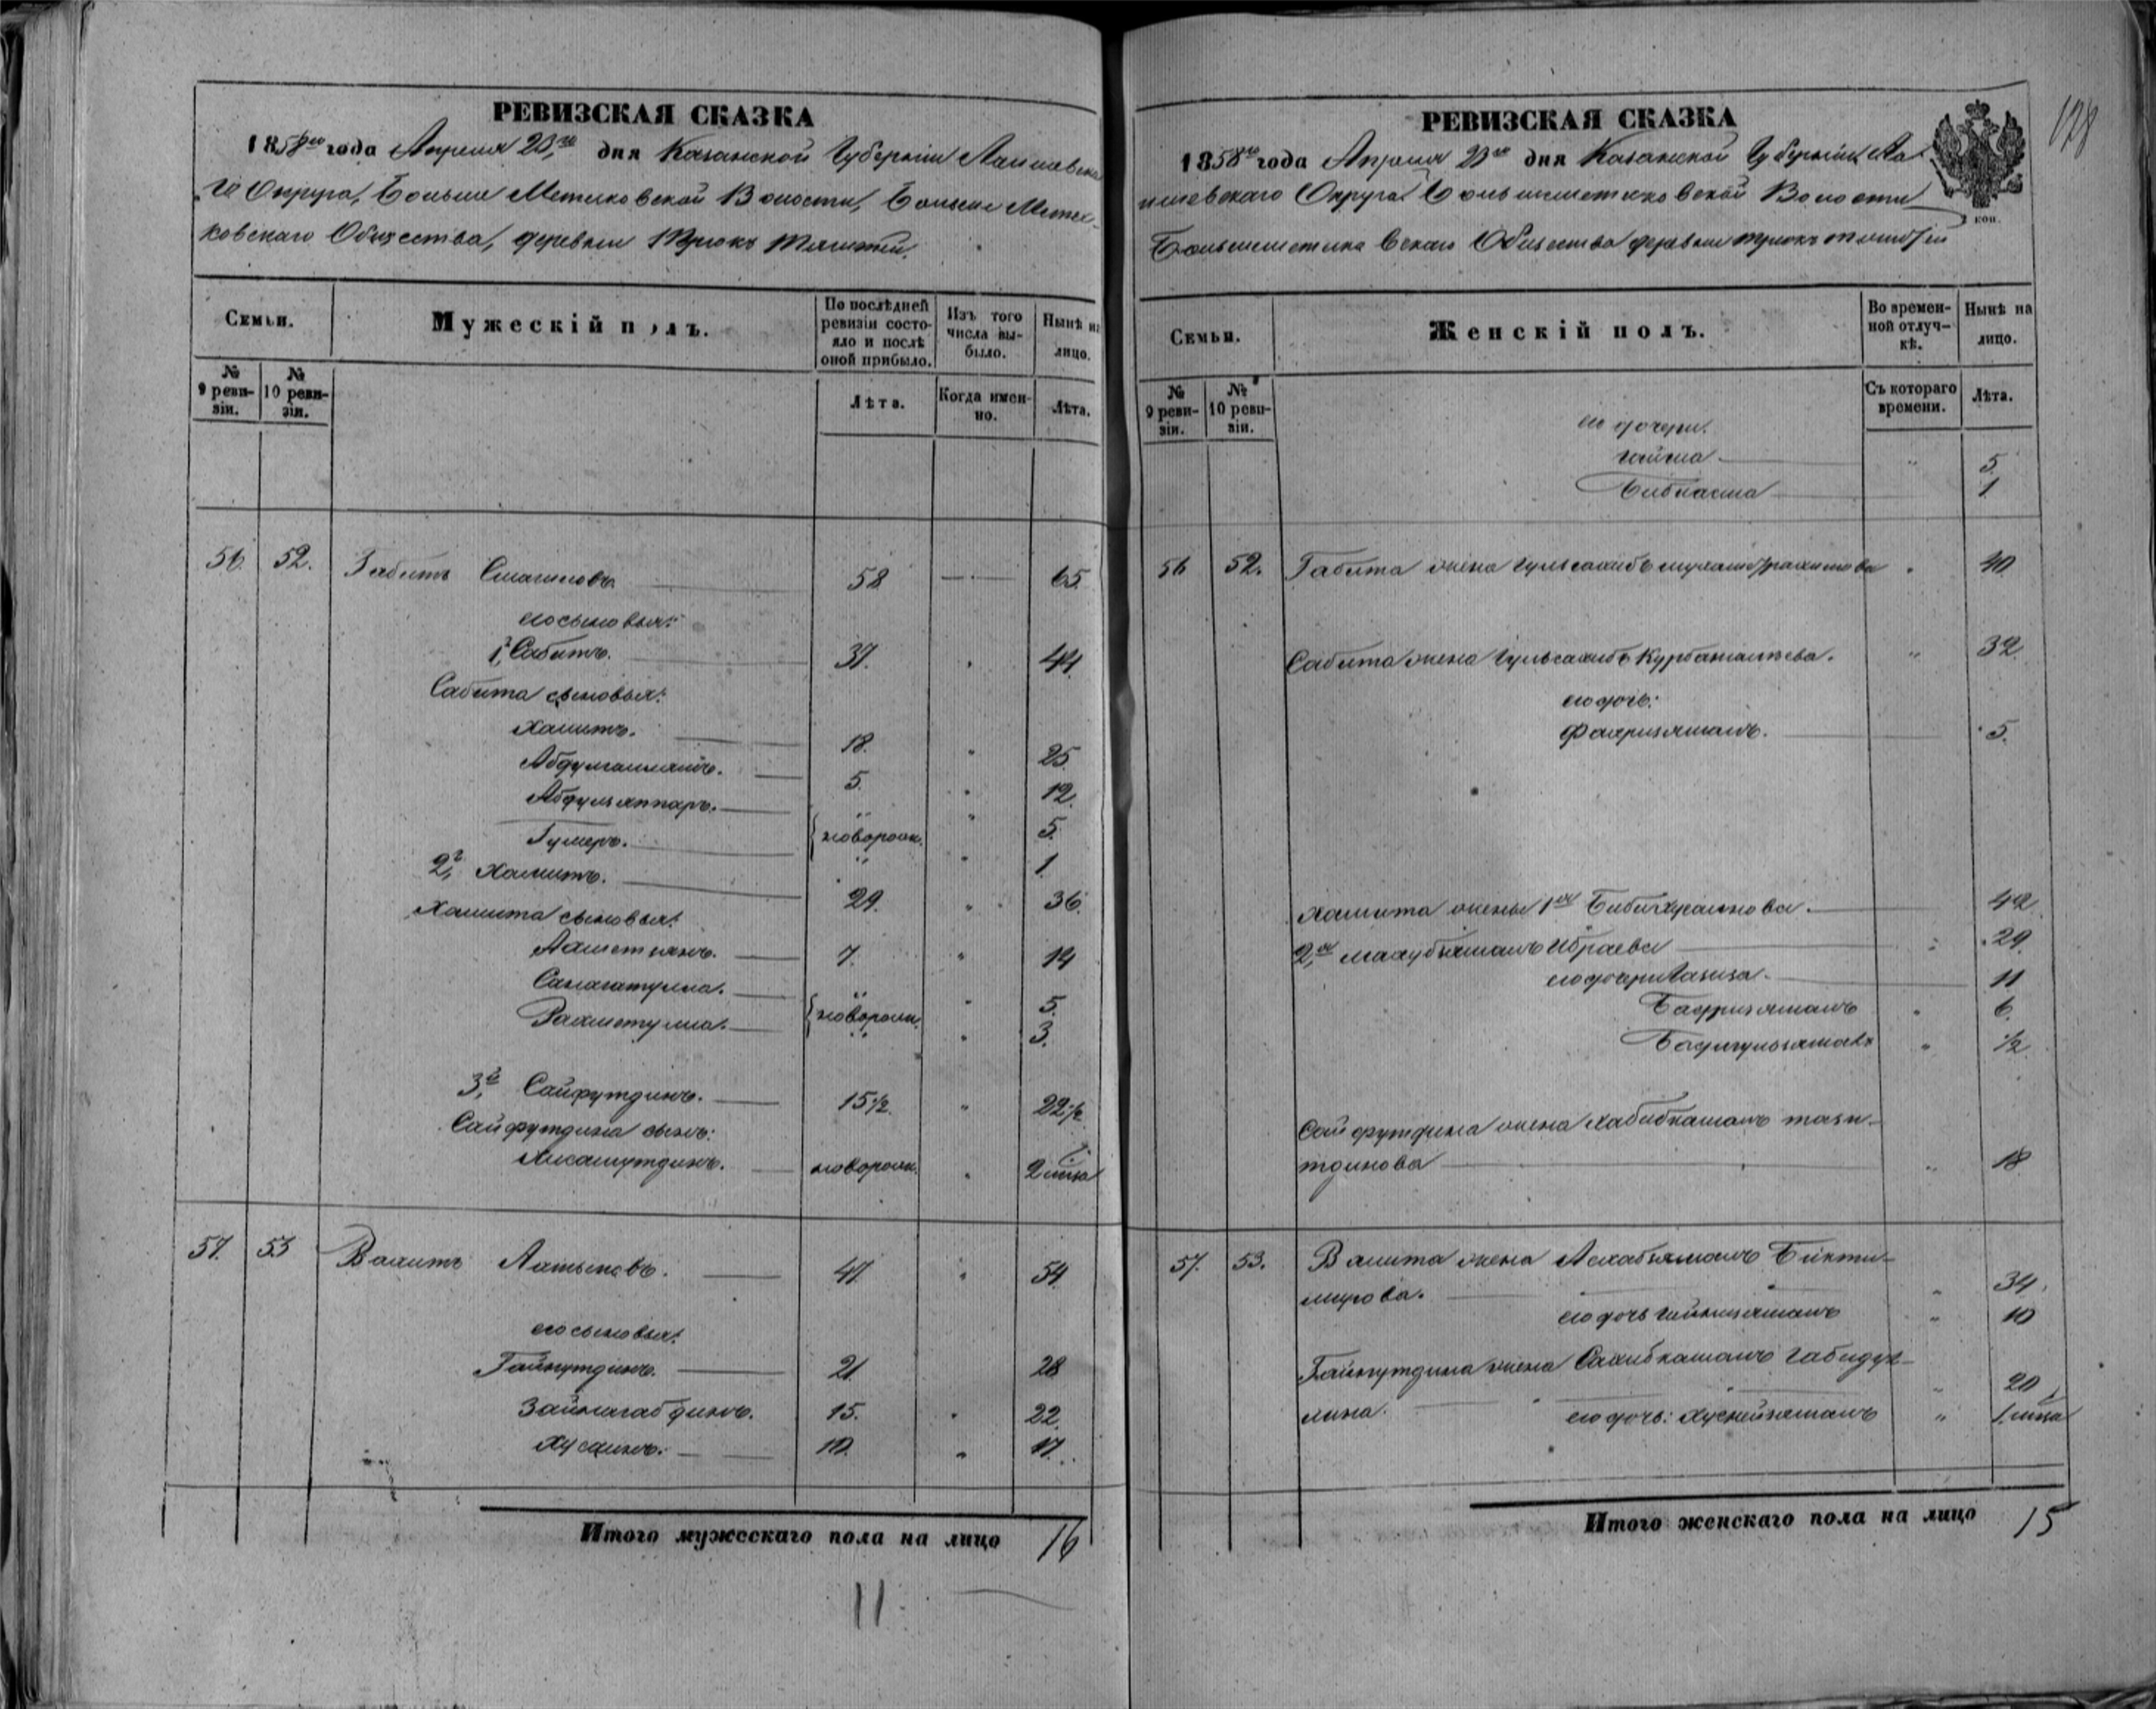 РЕВИЗСКАЯ СКАЗКА
1858го года Апреля 20го дня Казанской Губернiи Лаишевска-
го Округа, Больше Метесковской Волости, Больше Метес-
ковскаго Общества, деревни Трюкъ Тямтей.
Семьи.
Мужескій полъ.
По послѣдней ревизіи состояло и послѣ оной прибыло.
Изъ того числа выбыло.
Нынѣ на лицо.
№ 9 ревизіи.
№ 10 ревизіи.
Лѣта.
Когда именно.
Лѣта.
56. 52. Габитъ Смагиловъ. 58 65.
его сыновья:
1, Сабитъ. 37. 44.
Сабита сыновья:
Хамитъ. 18. 25.
5. 12.
Абдулзяппаръ. „ 5.
Гумеръ. новорожд. 1.
2, Хамитъ. 29. 36.
Хамита сыновья:
Ахметзянъ. 7. 14
Санагатулла. „ 5.
Рахметулла. новорожд. 3.
3, Сайфутдинъ. 15½. 22½
Сайфутдина сынъ:
новорожд. 2 мѣся
57. 53 Вахитъ Латыповъ. 47 54.
его сыновья:
Гайнутдинъ. 21. 28
Зайнагабдинъ. 15. 22.
Хусаинъ. 10. 17.
Итого мужескаго пола на лицо 16
11
РЕВИЗСКАЯ СКАЗКА
178
1858го года Апреля 20го дня Казанской Губернiи, Ла-
ишевскаго Округа Большеметесковской Волости
2 коп.
Большеметесковскаго Общества деревни
Семьи.
Женскій полъ.
Во временной отлучкѣ.
Нынѣ на лицо.
№ 9 ревизіи.
№ 10 ревизіи.
Съ котораго времени.
Лѣта.
его дочери.
5.
1
56 52. Габита жена Гульсахибъ Мухаметрахимова 40
Сабита жена Гульсахибъ Курбангалеева. 32.
его дочь:
Фахризямалъ. 5.
Хамита жены 1я 42
2я Махубзямалъ Ибраева 29.
его дочери Газиза. 11
Бадризямалъ 6.
½
Сайфутдина жена Хабибкамалъ тази-
тдинова 18
57. 53. Вахита жена Асхабзямалъ Бикти-
мирова. 34.
его дочь 10
Гайнутдина жена Сахибкамалъ Габидул-
лина. 20
его дочь: Хуснизямалъ 1 мѣся
Итого женскаго пола на лицо 15